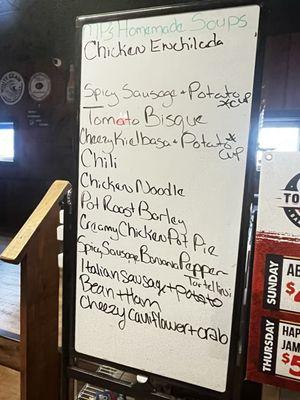 JP's Homemade Soups
Chicken Enchilada
Spicy Sausage + Potato
*cup
Tomato Bisque
Cheezy Kielbasa + Potato *
cup
Chili
Chicken Noodle
Pot Roast Barley
Creamy Chicken Pot Pie
Spicy Sausage Banana Pepper
Tortellini
Italian Sausage + Potato
Bean + Ham
Cheezy Cauliflower + Crab
TO
SUNDAY
AB
$
THURSDAY
HAP
JAM
$5